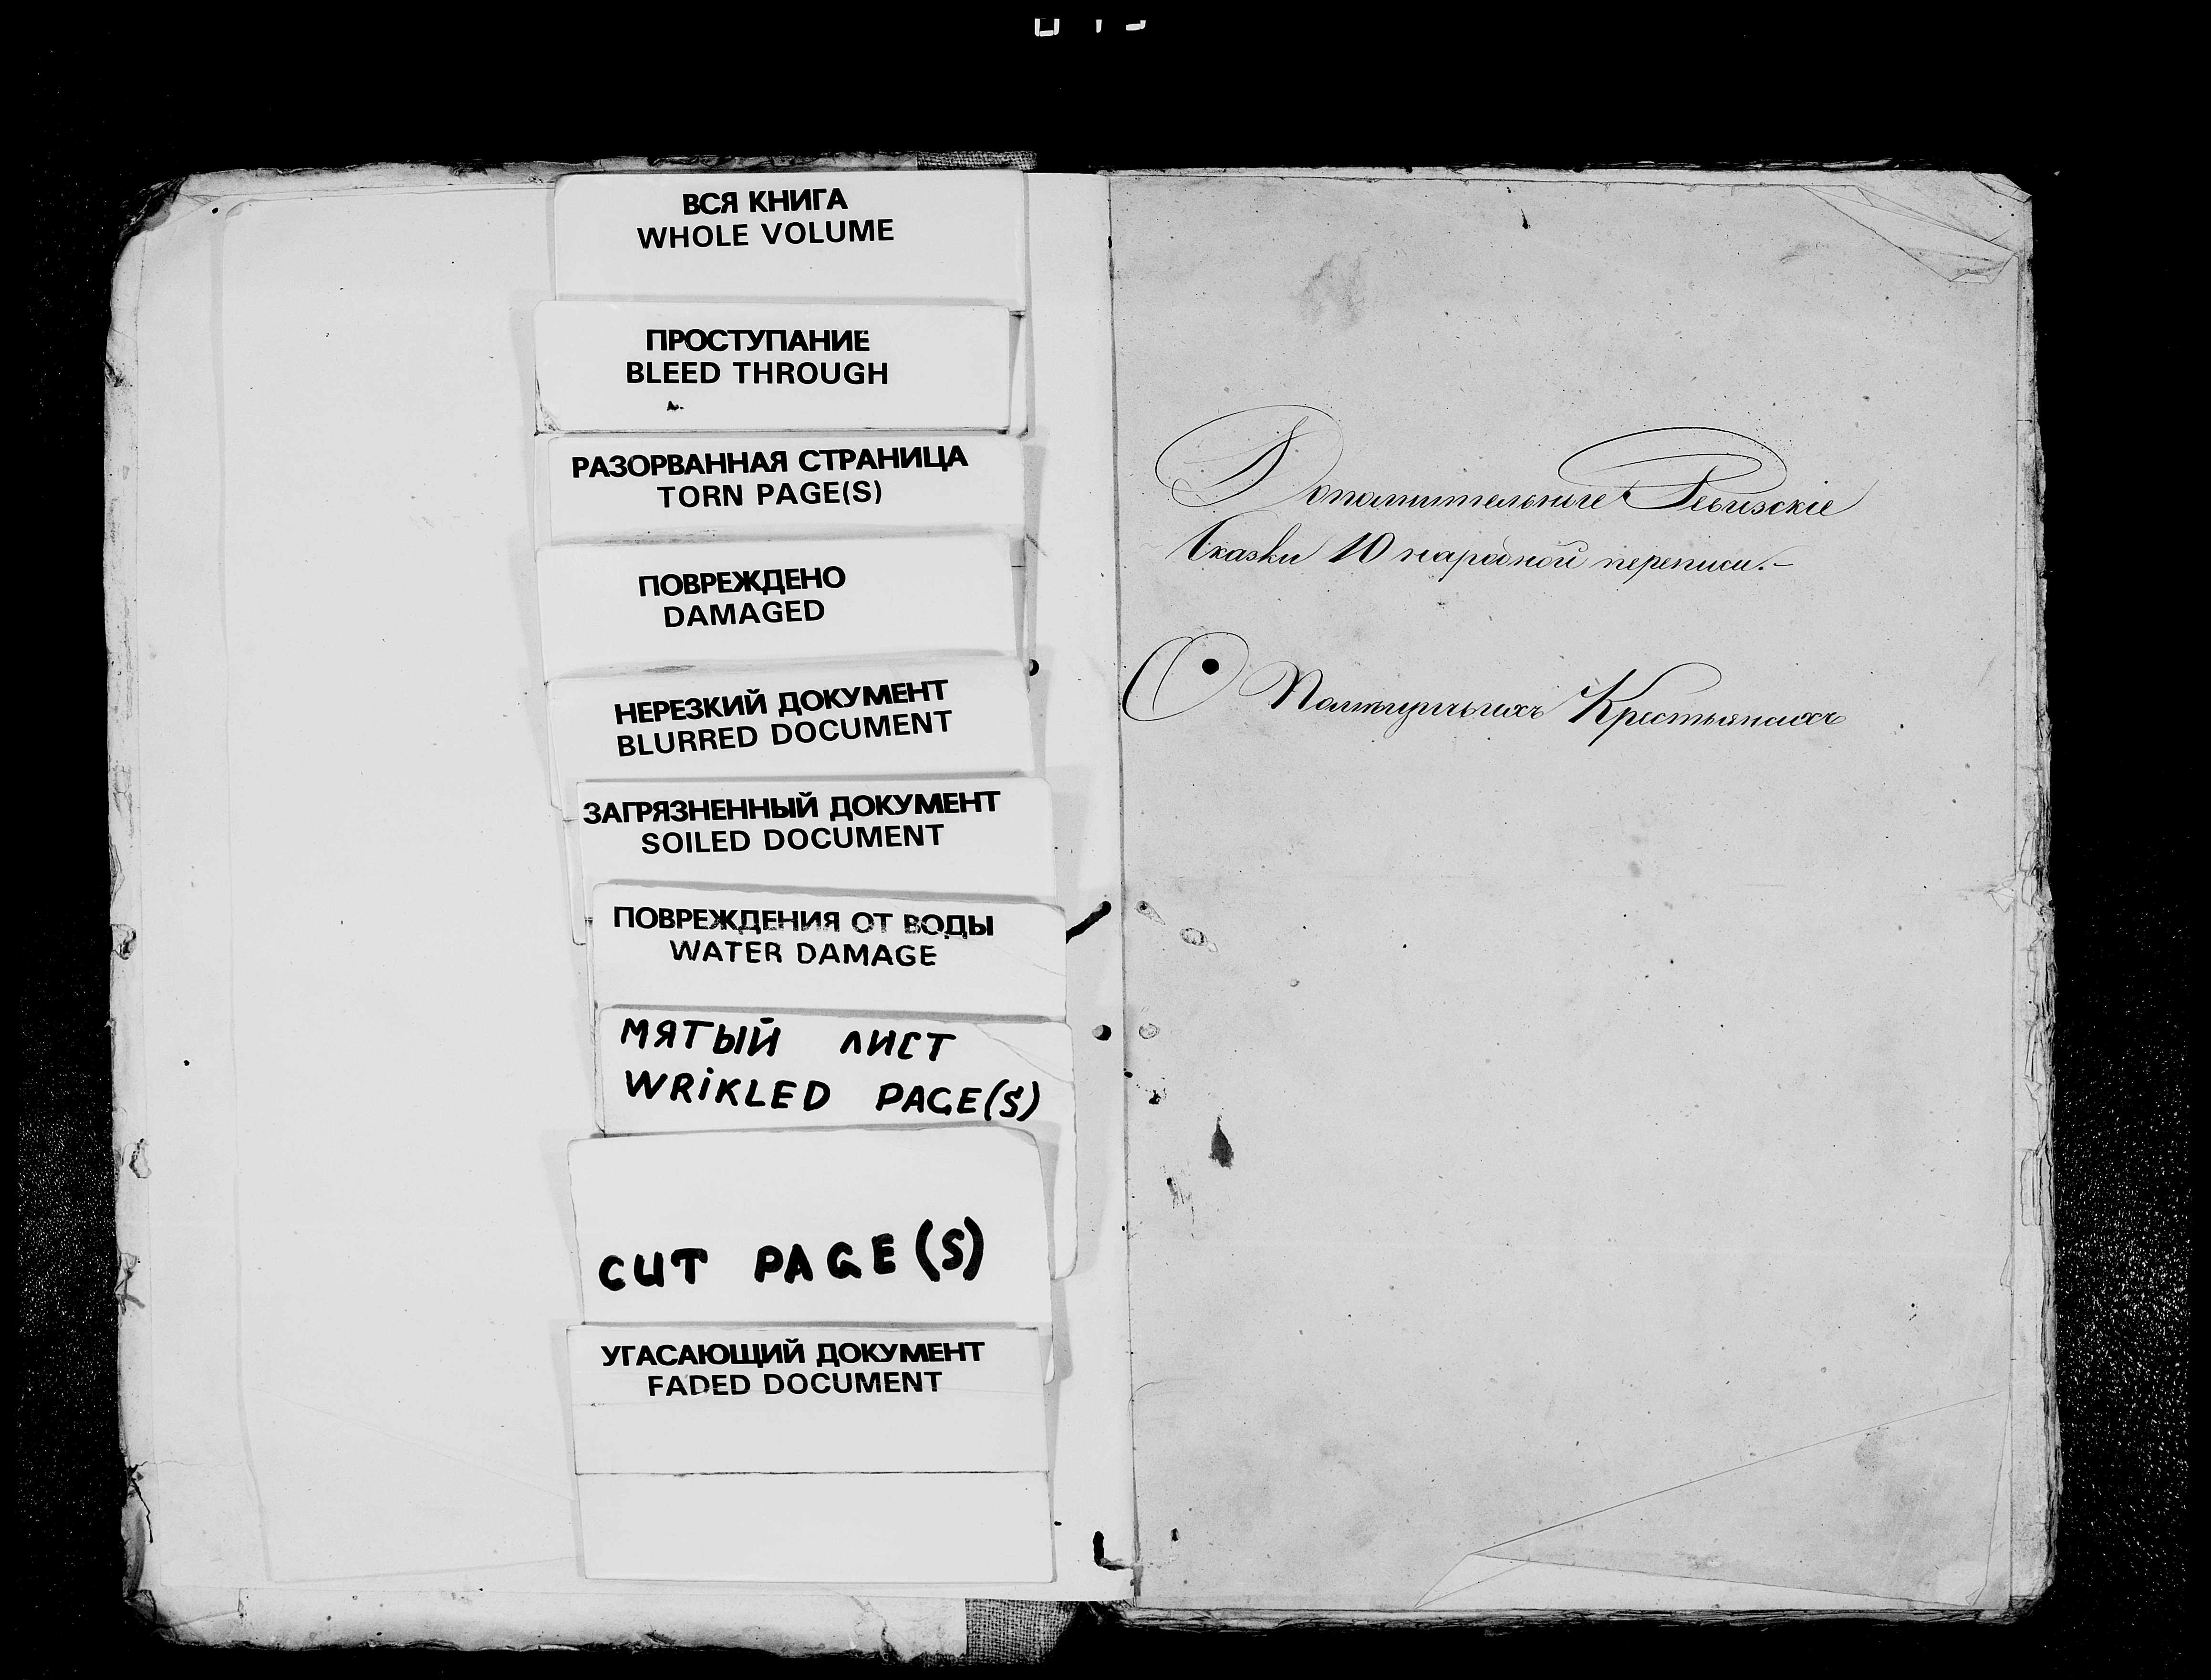 ВСЯ КНИГА
WHOLE VOLUME
ПРОСТУПАНИЕ
BLEED THROUGH
РАЗОРВАННАЯ СТРАНИЦА
TORN PAGE(S)
ПОВРЕЖДЕНО
DAMAGED
НЕРЕЗКИЙ ДОКУМЕНТ
BLURRED DOCUMENT
ЗАГРЯЗНЕННЫЙ ДОКУМЕНТ
SOILED DOCUMENT
ПОВРЕЖДЕНИЯ ОТ ВОДЫ
WATER DAMAGE
МЯТЫЙ ЛИСТ
WRiKLED PAGE(S)
CUT PAGE(S)
УГАСАЮЩИЙ ДОКУМЕНТ
FADED DOCUMENT
Дополнительные Ревизскіе
Сказки 10 народной переписи.-
О Крестьянахъ